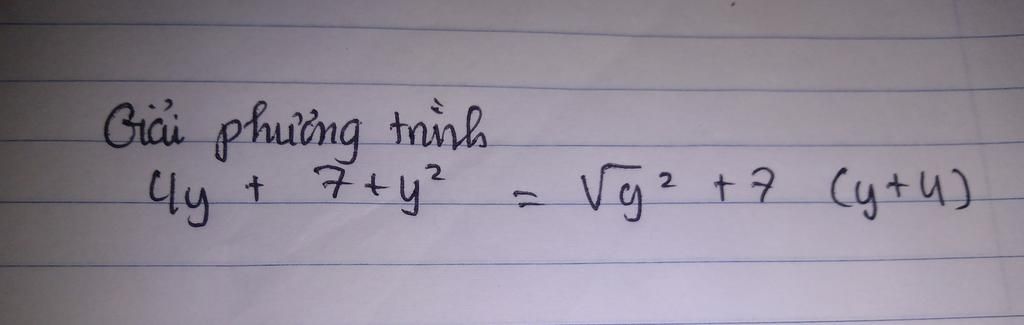 Giải phương trình
4y + 7 + y² = √y² + 7 (y+4)